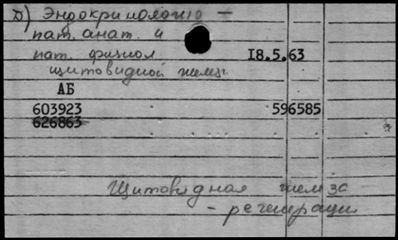 б) Эндокринологию —
пат. анат. и
пат. физиол 18.5.63
щитовидной желез
АБ
603923 596585
626863
Щитовидная железа
- регенерация